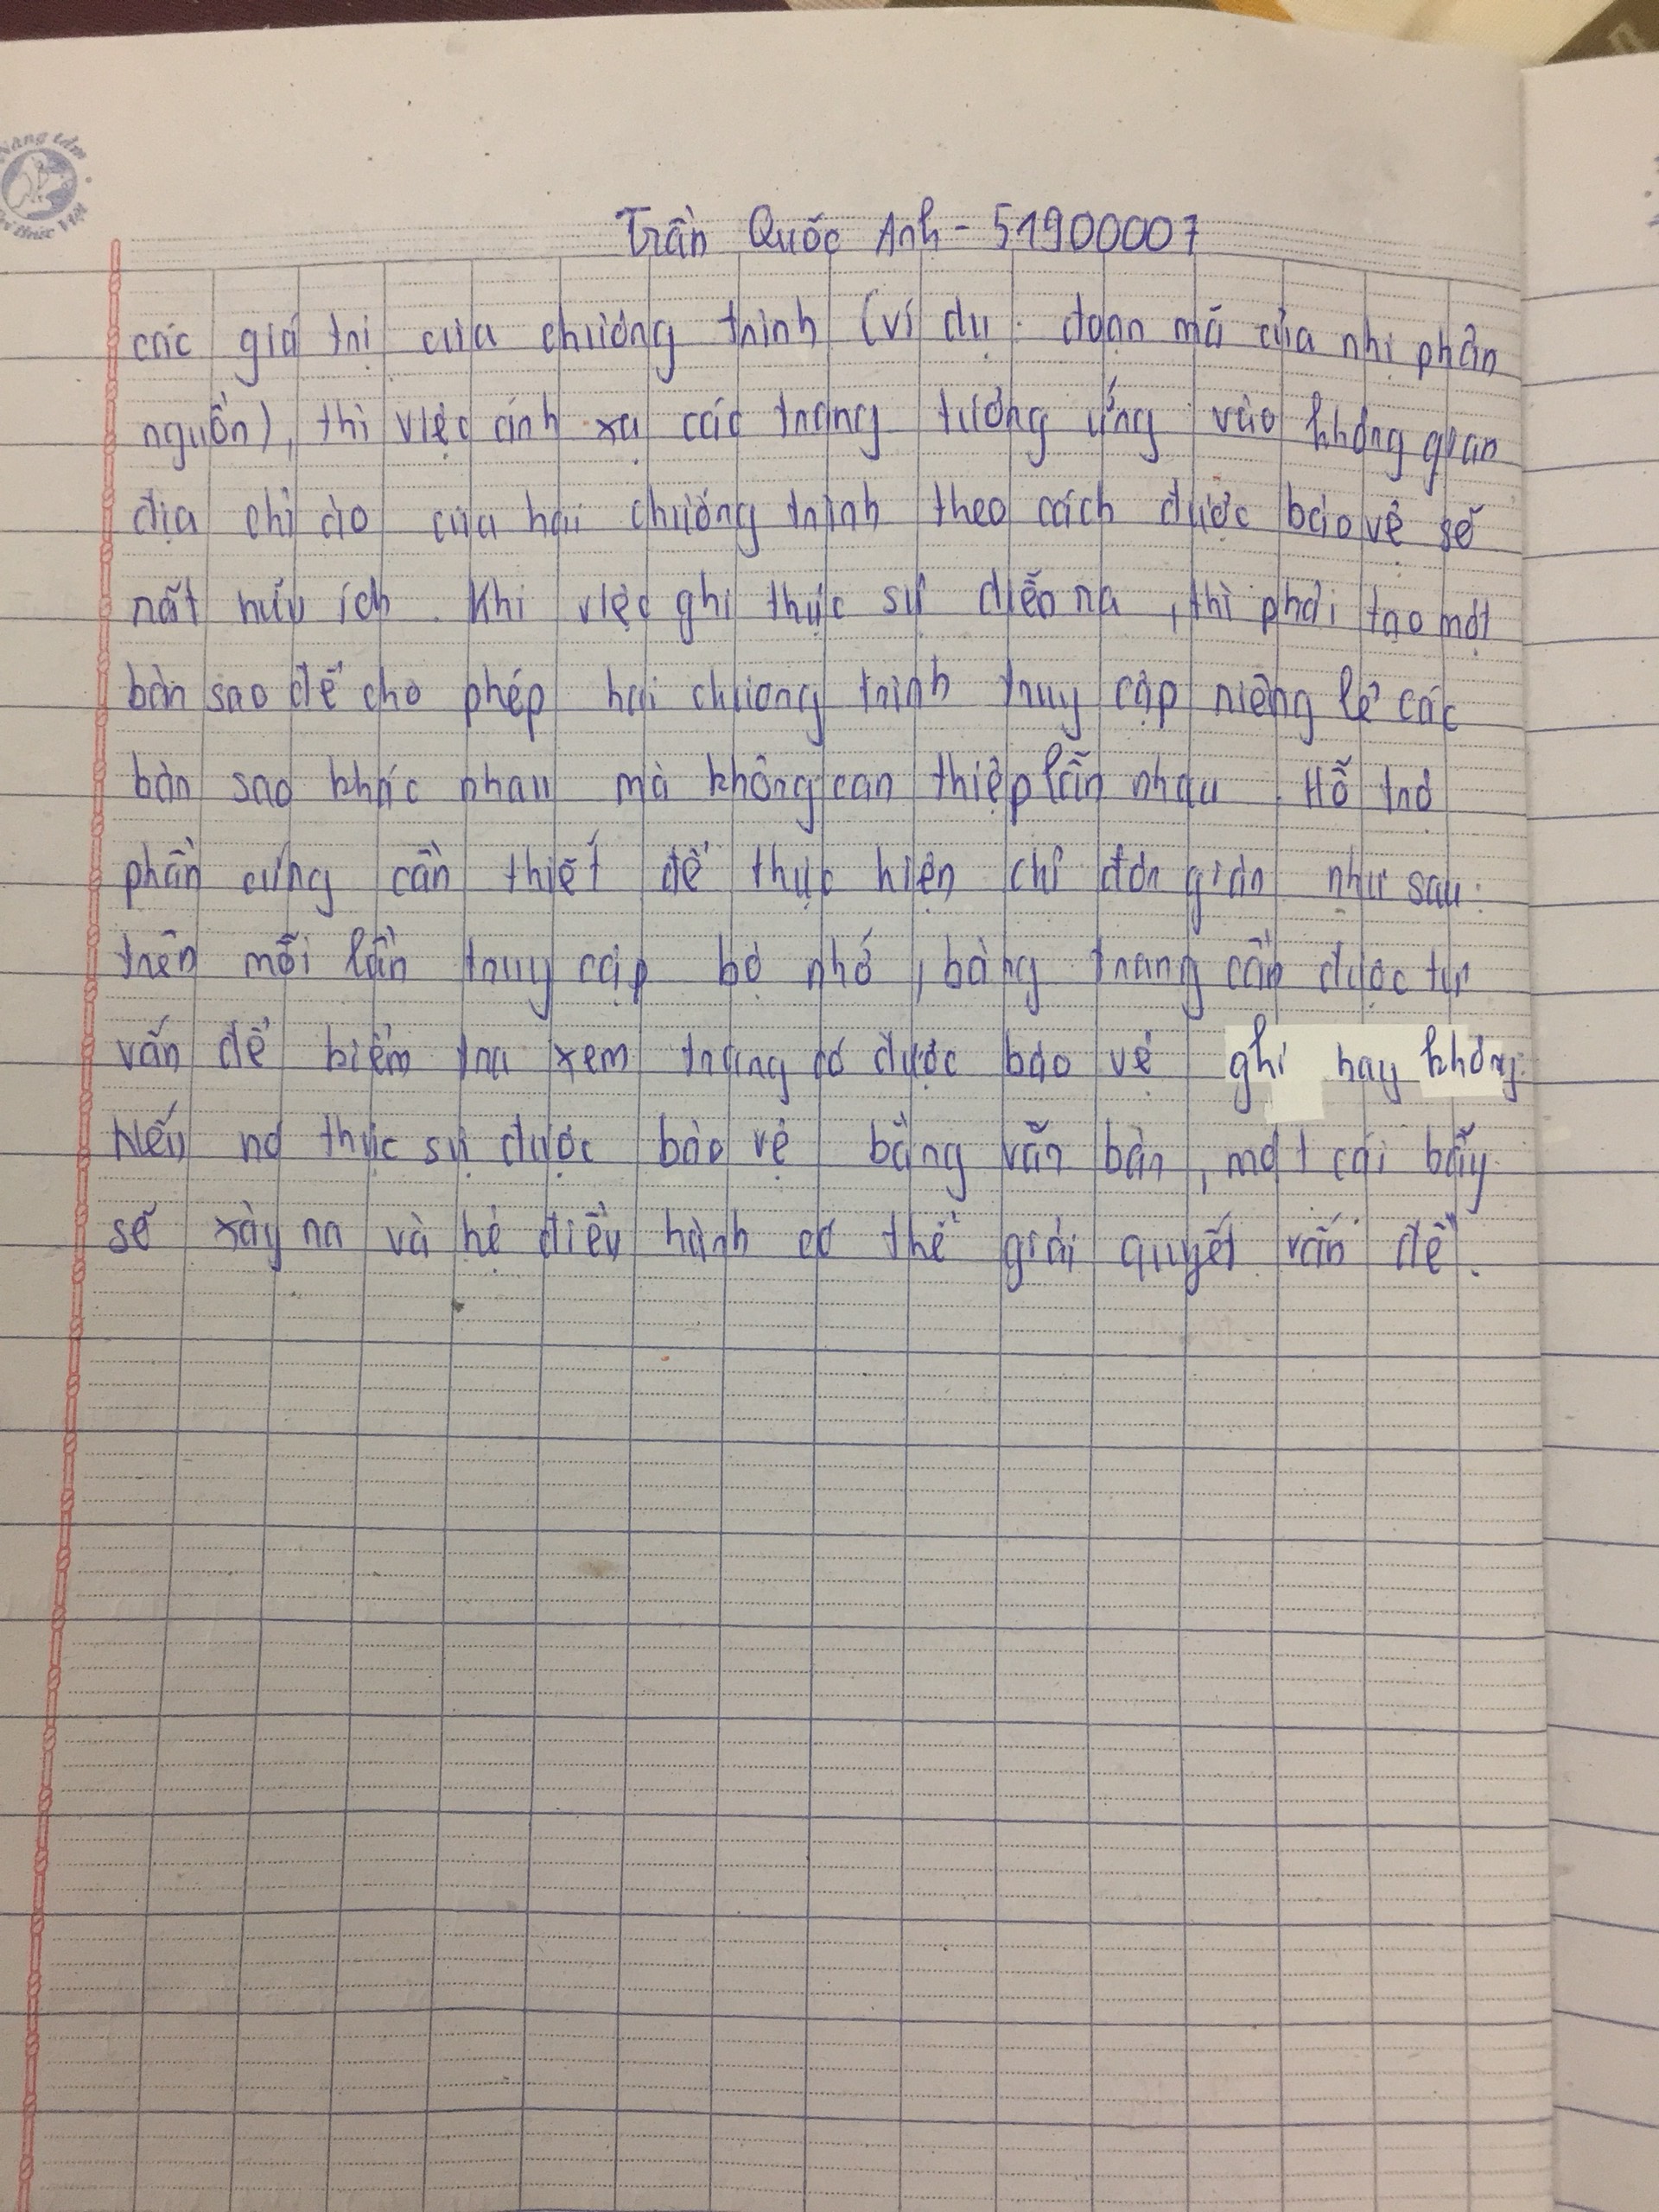 Nâng tầm
tri thức Việt
Trần Quốc Anh - 51900007
các giá trị của chương trình (ví dụ: đoạn mã của nhị phân
nguồn), thì việc ánh xạ các trang tương ứng vào không gian
địa chỉ ảo của hai chương trình theo cách được bảo vệ sẽ
rất hữu ích. Khi việc ghi thực sự diễn ra, thì phải tạo một
bản sao để cho phép hai chương trình truy cập riêng lẻ các
bản sao khác nhau mà không can thiệp lẫn nhau. Hỗ trợ
phần cứng cần thiết để thực hiện chỉ đơn giản như sau:
trên mỗi lần truy cập bộ nhớ, bảng trang cần được tư
vấn để kiểm tra xem trang có được bảo vệ ghi hay không.
Nếu nó thực sự được bảo vệ bằng văn bản, một cái bẫy
sẽ xảy ra và hệ điều hành có thể giải quyết vấn đề.